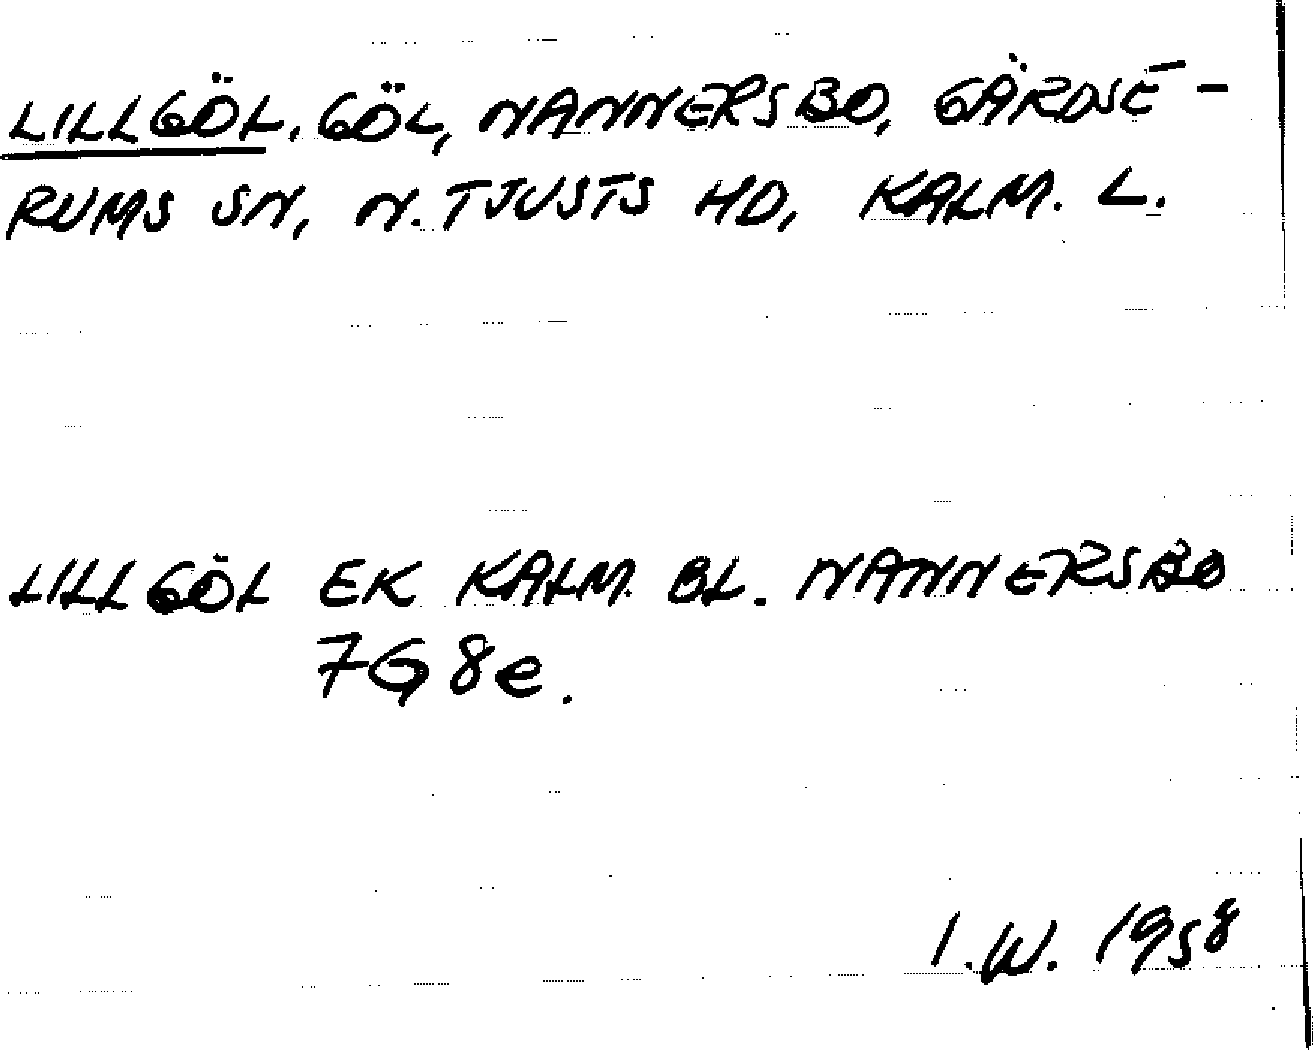 LILLGÖL. GÖL, NANNERSBO, GÄRDSE-
RUMS SN, N. TJUSTS HD, KALM. L.
LILLGÖL EK KALM. BL. NANNERSBO
7G 8e.
I.W. 1958